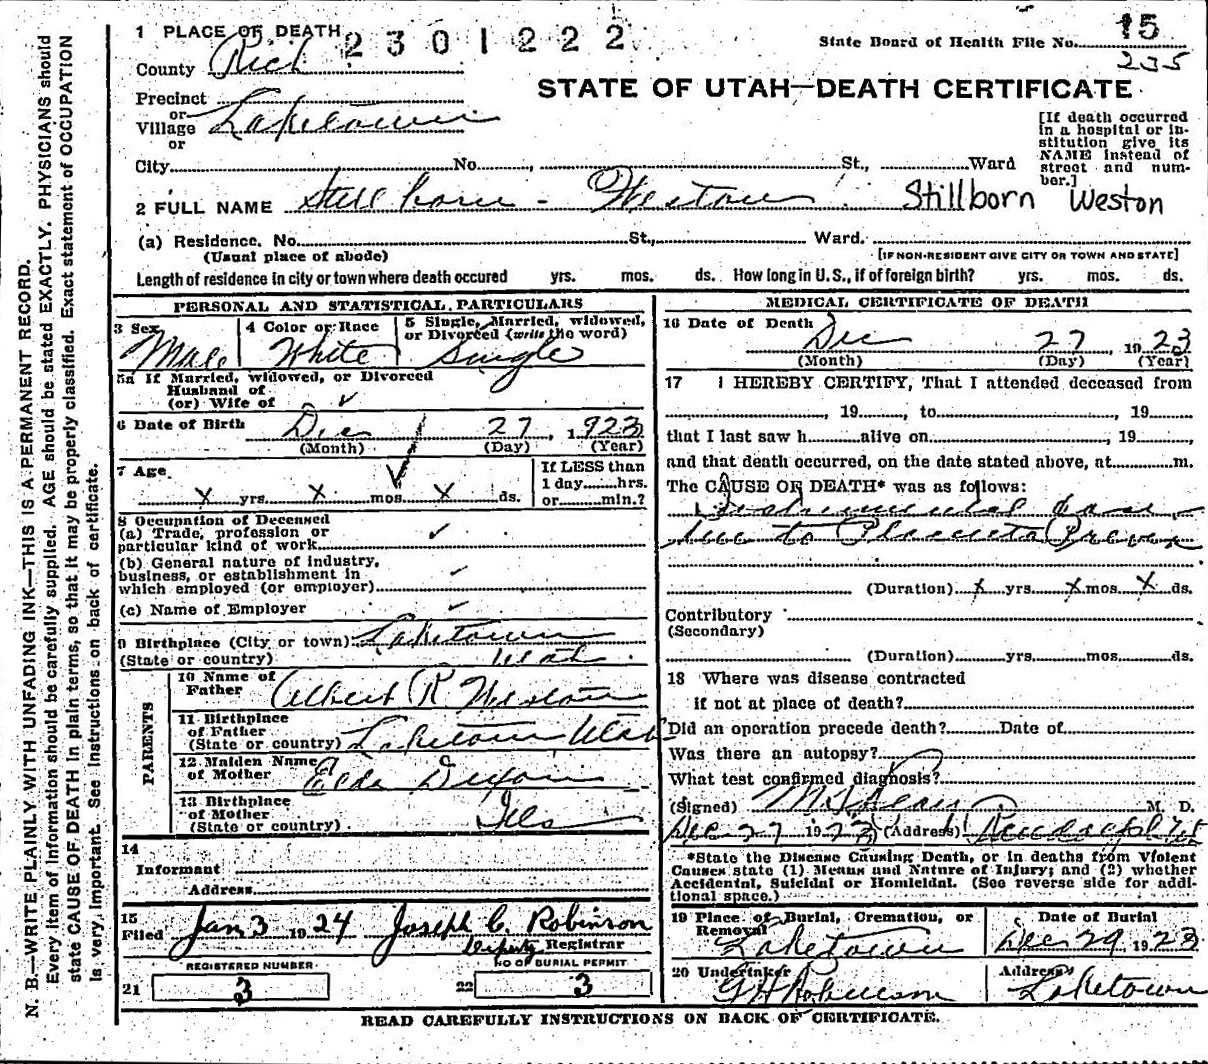 1 PLACE OF DEATH 2301222
State Board of Health File No. 15
235
County Rich
STATE OF UTAH—DEATH CERTIFICATE
Precinct
or
Village Laketown
or
[If death occurred
in a hospital or in-
stitution give its
NAME instead of
street and num-
ber.]
City No. St., Ward
2 FULL NAME Still born - Weston Stillborn Weston
(a) Residence. No. St., Ward.
(Usual place of abode) [IF NON-RESIDENT GIVE CITY OR TOWN AND STATE]
Length of residence in city or town where death occured yrs. mos. ds. How long in U. S., if of foreign birth? yrs. mos. ds.
PERSONAL AND STATISTICAL PARTICULARS
3 Sex
Male
4 Color or Race
White
5 Single, Married, widowed,
or Divorced (write the word)
Single
5a If Married, widowed, or Divorced
Husband of
(or) Wife of
6 Date of Birth Dec 27, 1923
(Month) (Day) (Year)
7 Age
X yrs. X mos. X ds.
If LESS than
1 day hrs.
or min.?
8 Occupation of Deceased
(a) Trade, profession or
particular kind of work
(b) General nature of industry,
business, or establishment in
which employed (or employer)
(c) Name of Employer
9 Birthplace (City or town) Laketown
(State or country) Utah
PARENTS
10 Name of
Father Albert R Weston
11 Birthplace
of Father
(State or country) Laketown Utah
12 Maiden Name
of Mother Elda Dixon
13 Birthplace
of Mother
(State or country)
14
Informant
Address
15
Filed Jan 3 1924 Joseph C. Robinson
Deputy Registrar
REGISTERED NUMBER
21 3
NO OF BURIAL PERMIT
22 3
MEDICAL CERTIFICATE OF DEATH
16 Date of Death Dec 27, 1923
(Month) (Day) (Year)
17 I HEREBY CERTIFY, That I attended deceased from
, 19 , to , 19
that I last saw h alive on , 19 ,
and that death occurred, on the date stated above, at m.
The CAUSE OF DEATH* was as follows:
Instrumental
due to Placenta Previa
(Duration) X yrs. X mos. X ds.
Contributory
(Secondary)
(Duration) yrs. mos. ds.
18 Where was disease contracted
if not at place of death?
Did an operation precede death? Date of
Was there an autopsy?
What test confirmed diagnosis?
(Signed) M. D.
Dec 27 1923 (Address) Randolph Ut
*State the Disease Causing Death, or in deaths from Violent
Causes state (1) Means and Nature of Injury; and (2) whether
Accidental, Suicidal or Homicidal. (See reverse side for addi-
tional space.)
19 Place of Burial, Cremation, or
Removal
Laketown
Date of Burial
Dec 29 1923
20 Undertaker
G H Robinson
Address
Laketown
READ CAREFULLY INSTRUCTIONS ON BACK OF CERTIFICATE.
N. B.—WRITE PLAINLY WITH UNFADING INK—THIS IS A PERMANENT RECORD.
Every item of information should be carefully supplied. AGE should be stated EXACTLY. PHYSICIANS should
state CAUSE OF DEATH in plain terms, so that it may be properly classified. Exact statement of OCCUPATION
is very important. See instructions on back of certificate.